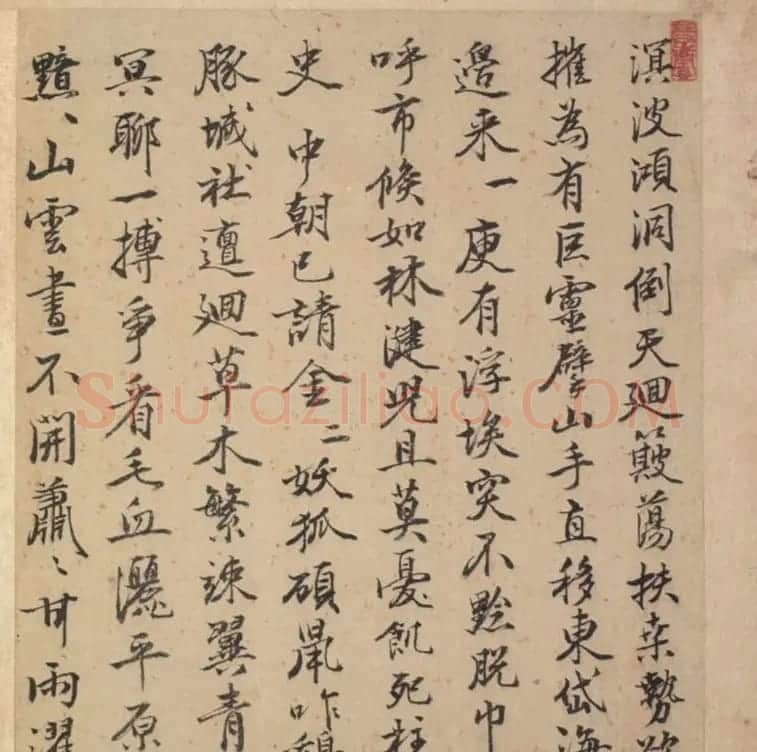 溟波澒洞倒天廻簸蕩扶桒勢欲
摧為有巨靈擘山手直移東岱海
邉来一庚有浮埃突不黔脱巾
呼市候如林健児且莫憂飢死柱
史中朝已請金二妖狐碩鼠咋鷄
豚城社邅廻草木繁竦翼青
冥聊一搏爭看毛血灑平原
黯〻山雲晝不開蕭〻甘雨濯
Shufaziliao.COM